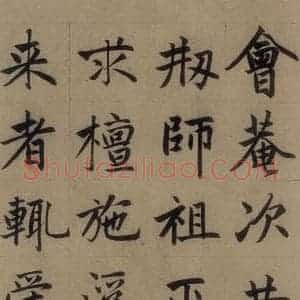 會菴次
刱師祖
求檀施
来者輒
Shufaziliao.com